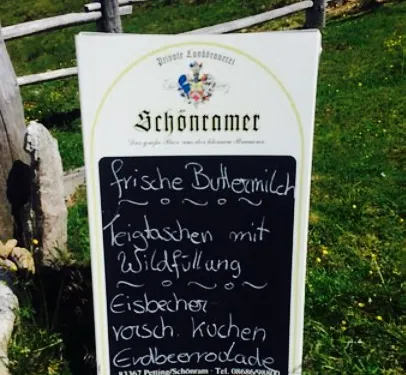 Private Landbrauerei
Schönramer
Das große Bier aus der kleinen Brauerei
frische Buttermilch
Teigtaschen mit
Wildfüllung
Eisbecher
versch. Kuchen
Erdbeerroulade
83367 Petting/Schönram · Tel. 08686/98800